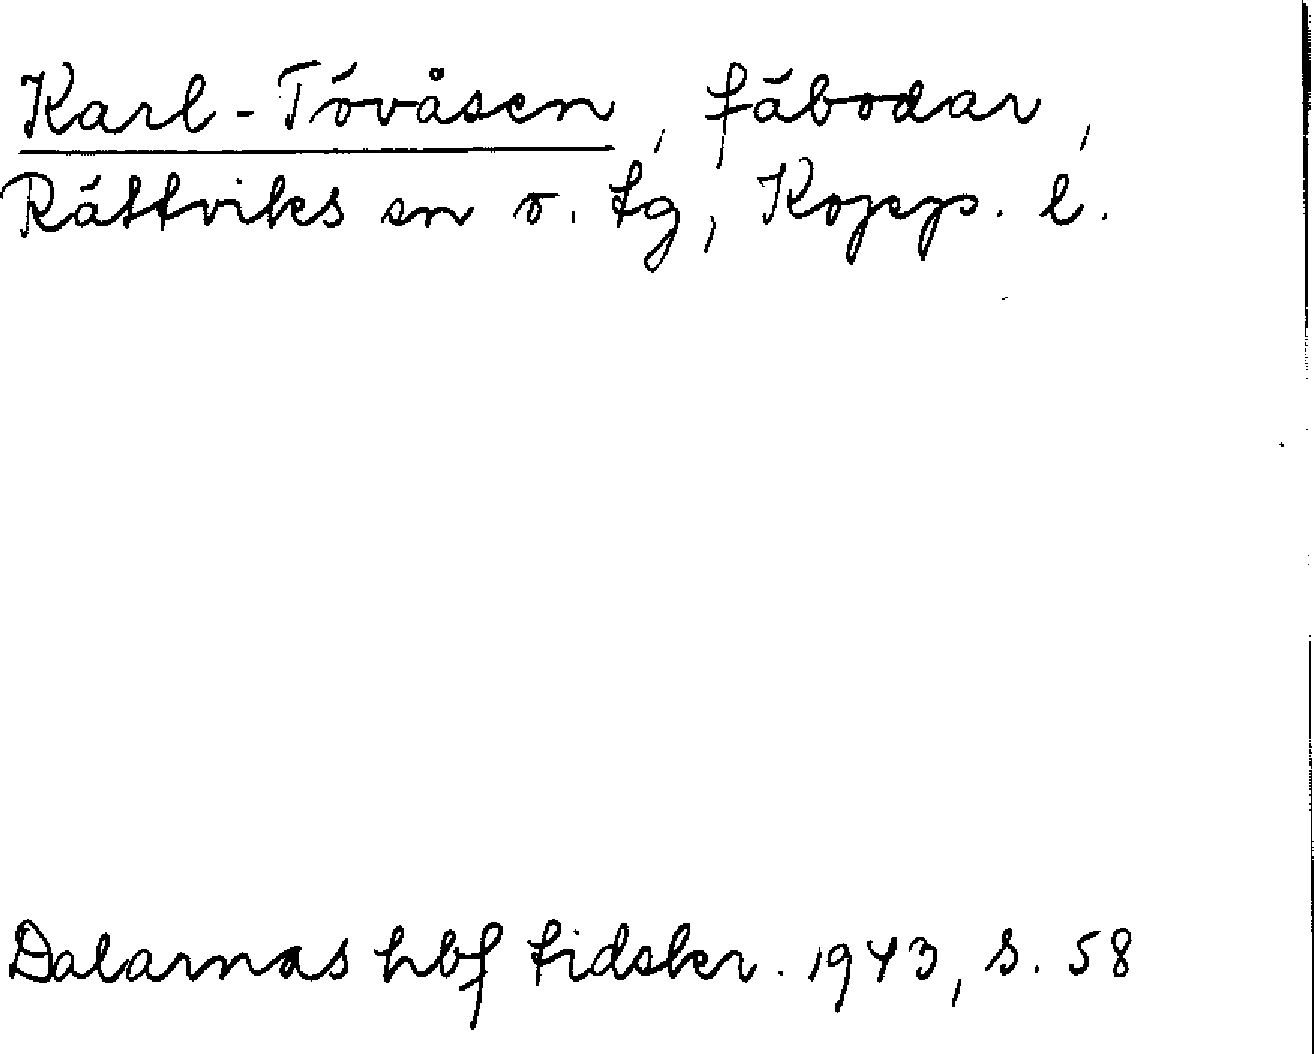 Karl-Tövåsen, fäbodar,
Rättviks sn o. tg, Kopp. l.
Dalarnas hbf tidskr. 1943, s. 58